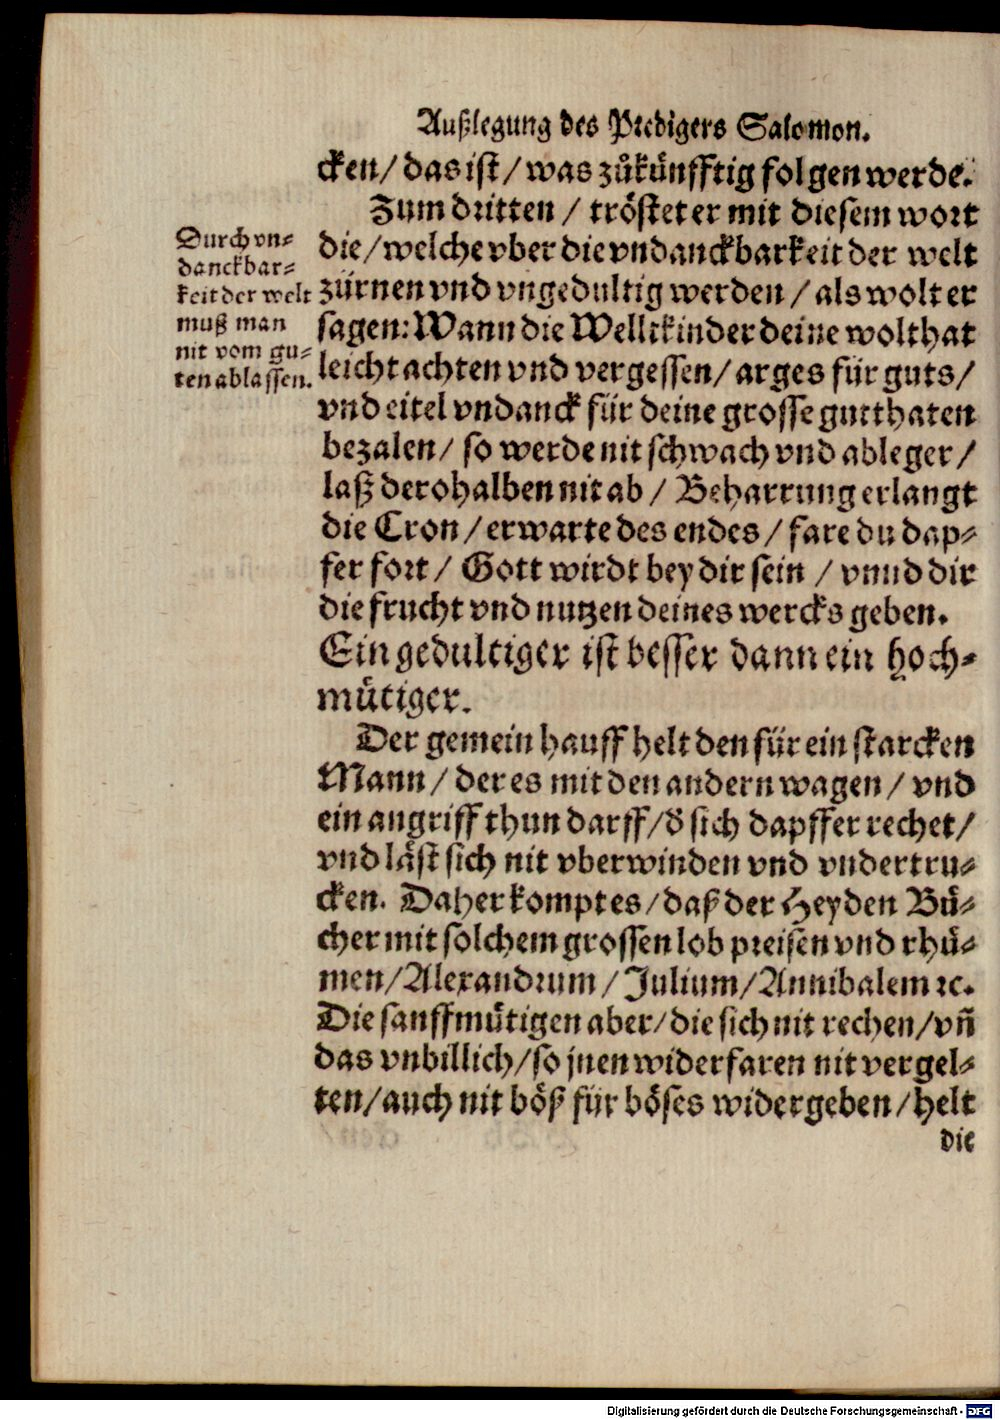 Außlegung des Predigers Salomon.
cken/ das ist/ was zůkünfftig folgen werde.
Zum dritten / tröstet er mit diesem wort
die/ welche vber die vndanckbarkeit der welt
zürnen vnd vngedultig werden / als wolt er
sagen: Wann die Welltkinder deine wolthat
leicht achten vnd vergessen/ arges für guts/
vnd eitel vndanck für deine grosse gutthaten
bezalen/ so werde nit schwach vnd ableger/
laß derohalben nit ab / Beharrung erlangt
die Cron / erwarte des endes / fare du dap-
fer fort / Gott wirdt bey dir sein / vnnd dir
die frucht vnd nutzen deines wercks geben.
Durch vn-
danckbar-
keit der welt
muß man
nit vom gu-
ten ablassen.
Ein gedultiger ist besser dann ein hoch-
mütiger.
Der gemein hauff helt den für ein starcken
Mann / der es mit den andern wagen / vnd
ein angriff thun darff/ d̕ sich dapffer rechet/
vnd läst sich nit vberwinden vnd vndertru-
cken. Daher kompt es/ daß der Heyden Bü-
cher mit solchem grossen lob preisen vnd rhü-
men/ Alexandrum / Julium/ Annibalem ꝛc.
Die sanffmütigen aber/ die sich nit rechen/ vñ
das vnbillich/ so jnen widerfaren nit vergel-
ten/ auch nit böß für böses widergeben/ helt
die
Digitalisierung gefördert durch die Deutsche Forschungsgemeinschaft - DFG